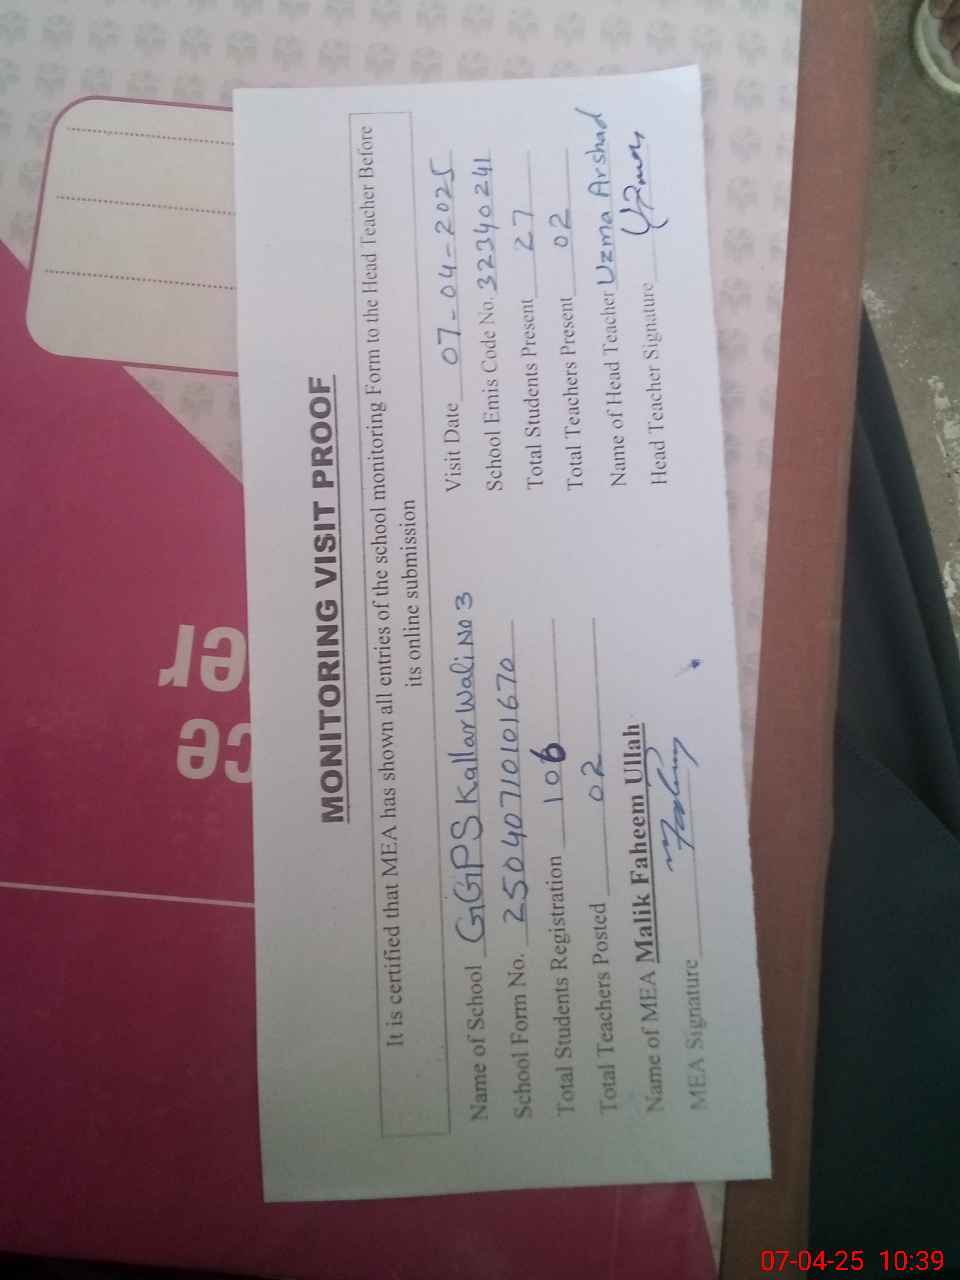 MONITORING VISIT PROOF
It is certified that MEA has shown all entries of the school monitoring Form to the Head Teacher Before
its online submission
Name of School GGPS Kallar Wali No 3 Visit Date 07-04-2025
School Form No. 25040710101670 School Emis Code No. 32340241
Total Students Registration 106 Total Students Present 27
Total Teachers Posted 02 Total Teachers Present 02
Name of MEA Malik Faheem Ullah Name of Head Teacher Uzma Arshad
MEA Signature Head Teacher Signature
ce
er
07-04-25 10:39